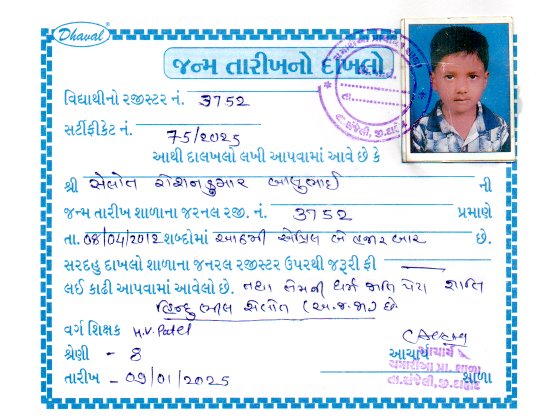 Dhaval
જન્મ તારીખનો દાખલો
વિદ્યાર્થીનો રજીસ્ટર નં. 3752
સર્ટીફીકેટ નં. 75/2025
આથી દાલખલો લખી આપવામાં આવે છે કે
શ્રી સેલોત રોશનકુમાર બાબુભાઈ ની
જન્મ તારીખ શાળાના જરનલ રજી. નં. 3752 પ્રમાણે
તા. 08/04/2012 શબ્દોમાં આઠમી એપ્રિલ બે હજાર બાર છે.
સરદહુ દાખલો શાળાના જનરલ રજીસ્ટર ઉપરથી જરૂરી ફી
લઈ કાઢી આપવામાં આવેલો છે. તથા તેમની ધર્મ જાતિ પેટા જ્ઞાતિ
હિન્દુ ભીલ સેલોત (અ.જ.જા) છે.
વર્ગ શિક્ષક H.V. Patel
શ્રેણી - 8 આચાર્ય
આચાર્ય
તારીખ - 09/01/2025 શાળા
તા.સંજેલી, જી.દાહોદ